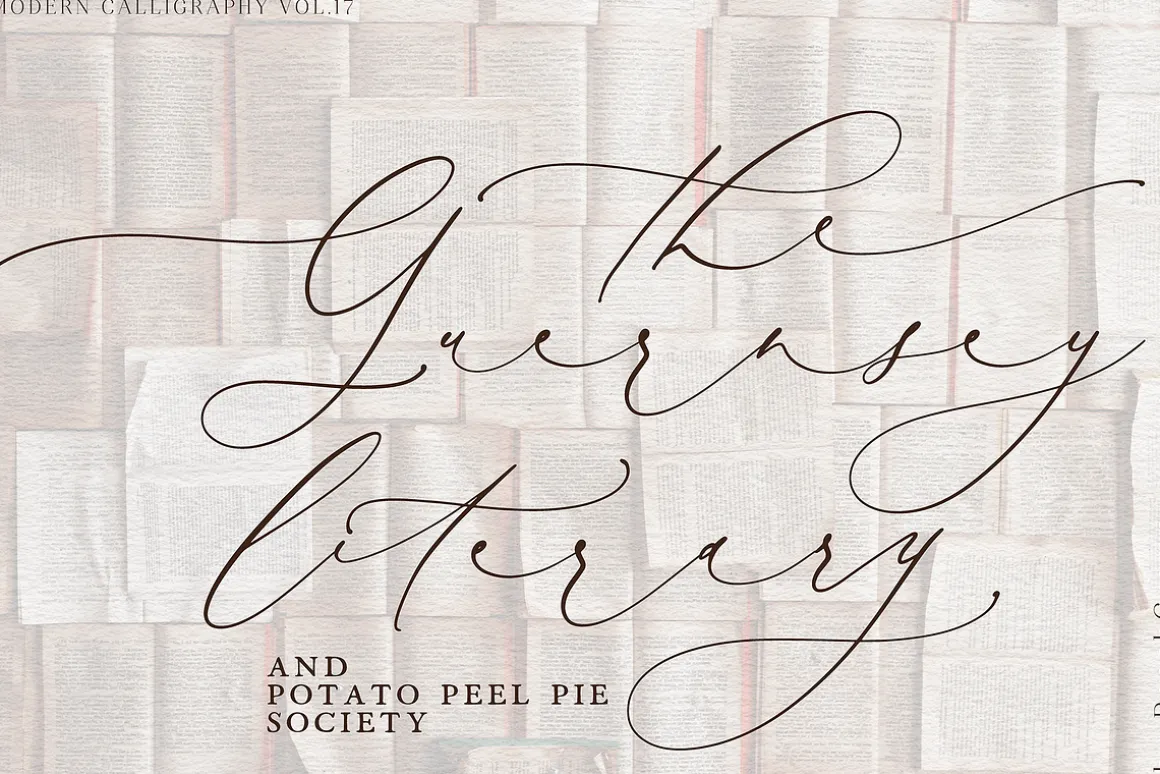 MODERN CALLIGRAPHY VOL.17
the
Guernsey
literary
AND
POTATO PEEL PIE
SOCIETY